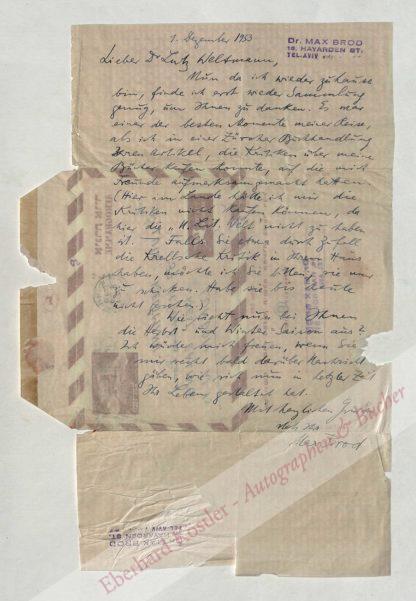 1. Dezember 1953
Dr. MAX BROD
16, HAYARDEN ST.
TEL-AVIV
Lieber Dr Lutz Weltmann,
Nun da ich wieder zuhause
bin, finde ich erst wieder Sammlung
genug, um Ihnen zu danken. Es war
einer der besten Momente meiner Reise,
als ich in einer Zürcher Buchhandlung
Ihren Artikel, die Kritiken über meine
Bücher kaufen konnte, auf die mich
Freunde aufmerksam gemacht hatten
(Hier im Lande hätte ich nur die
Kritiken nicht kaufen können, da
hier die nicht zu haben
ist. – Falls Sie etwa durch Zufall
die Kritik in Ihrem Haus
haben, möchte ich Sie bitten, sie mir
zu schicken. Habe sie bis heute
nicht gesehen)
Wie sieht nur bei Ihnen
die Herbst- und Winter-Saison aus?
Ich würde mich freuen, wenn Sie
mir recht bald darüber Nachricht
geben, wie sich nun in letzter Zeit
Ihr Leben gestaltet hat.
Mit herzlichen
Max Brod
MAX BROD
HAYARDEN ST.
Eberhard Köstler - Autographen & Bücher